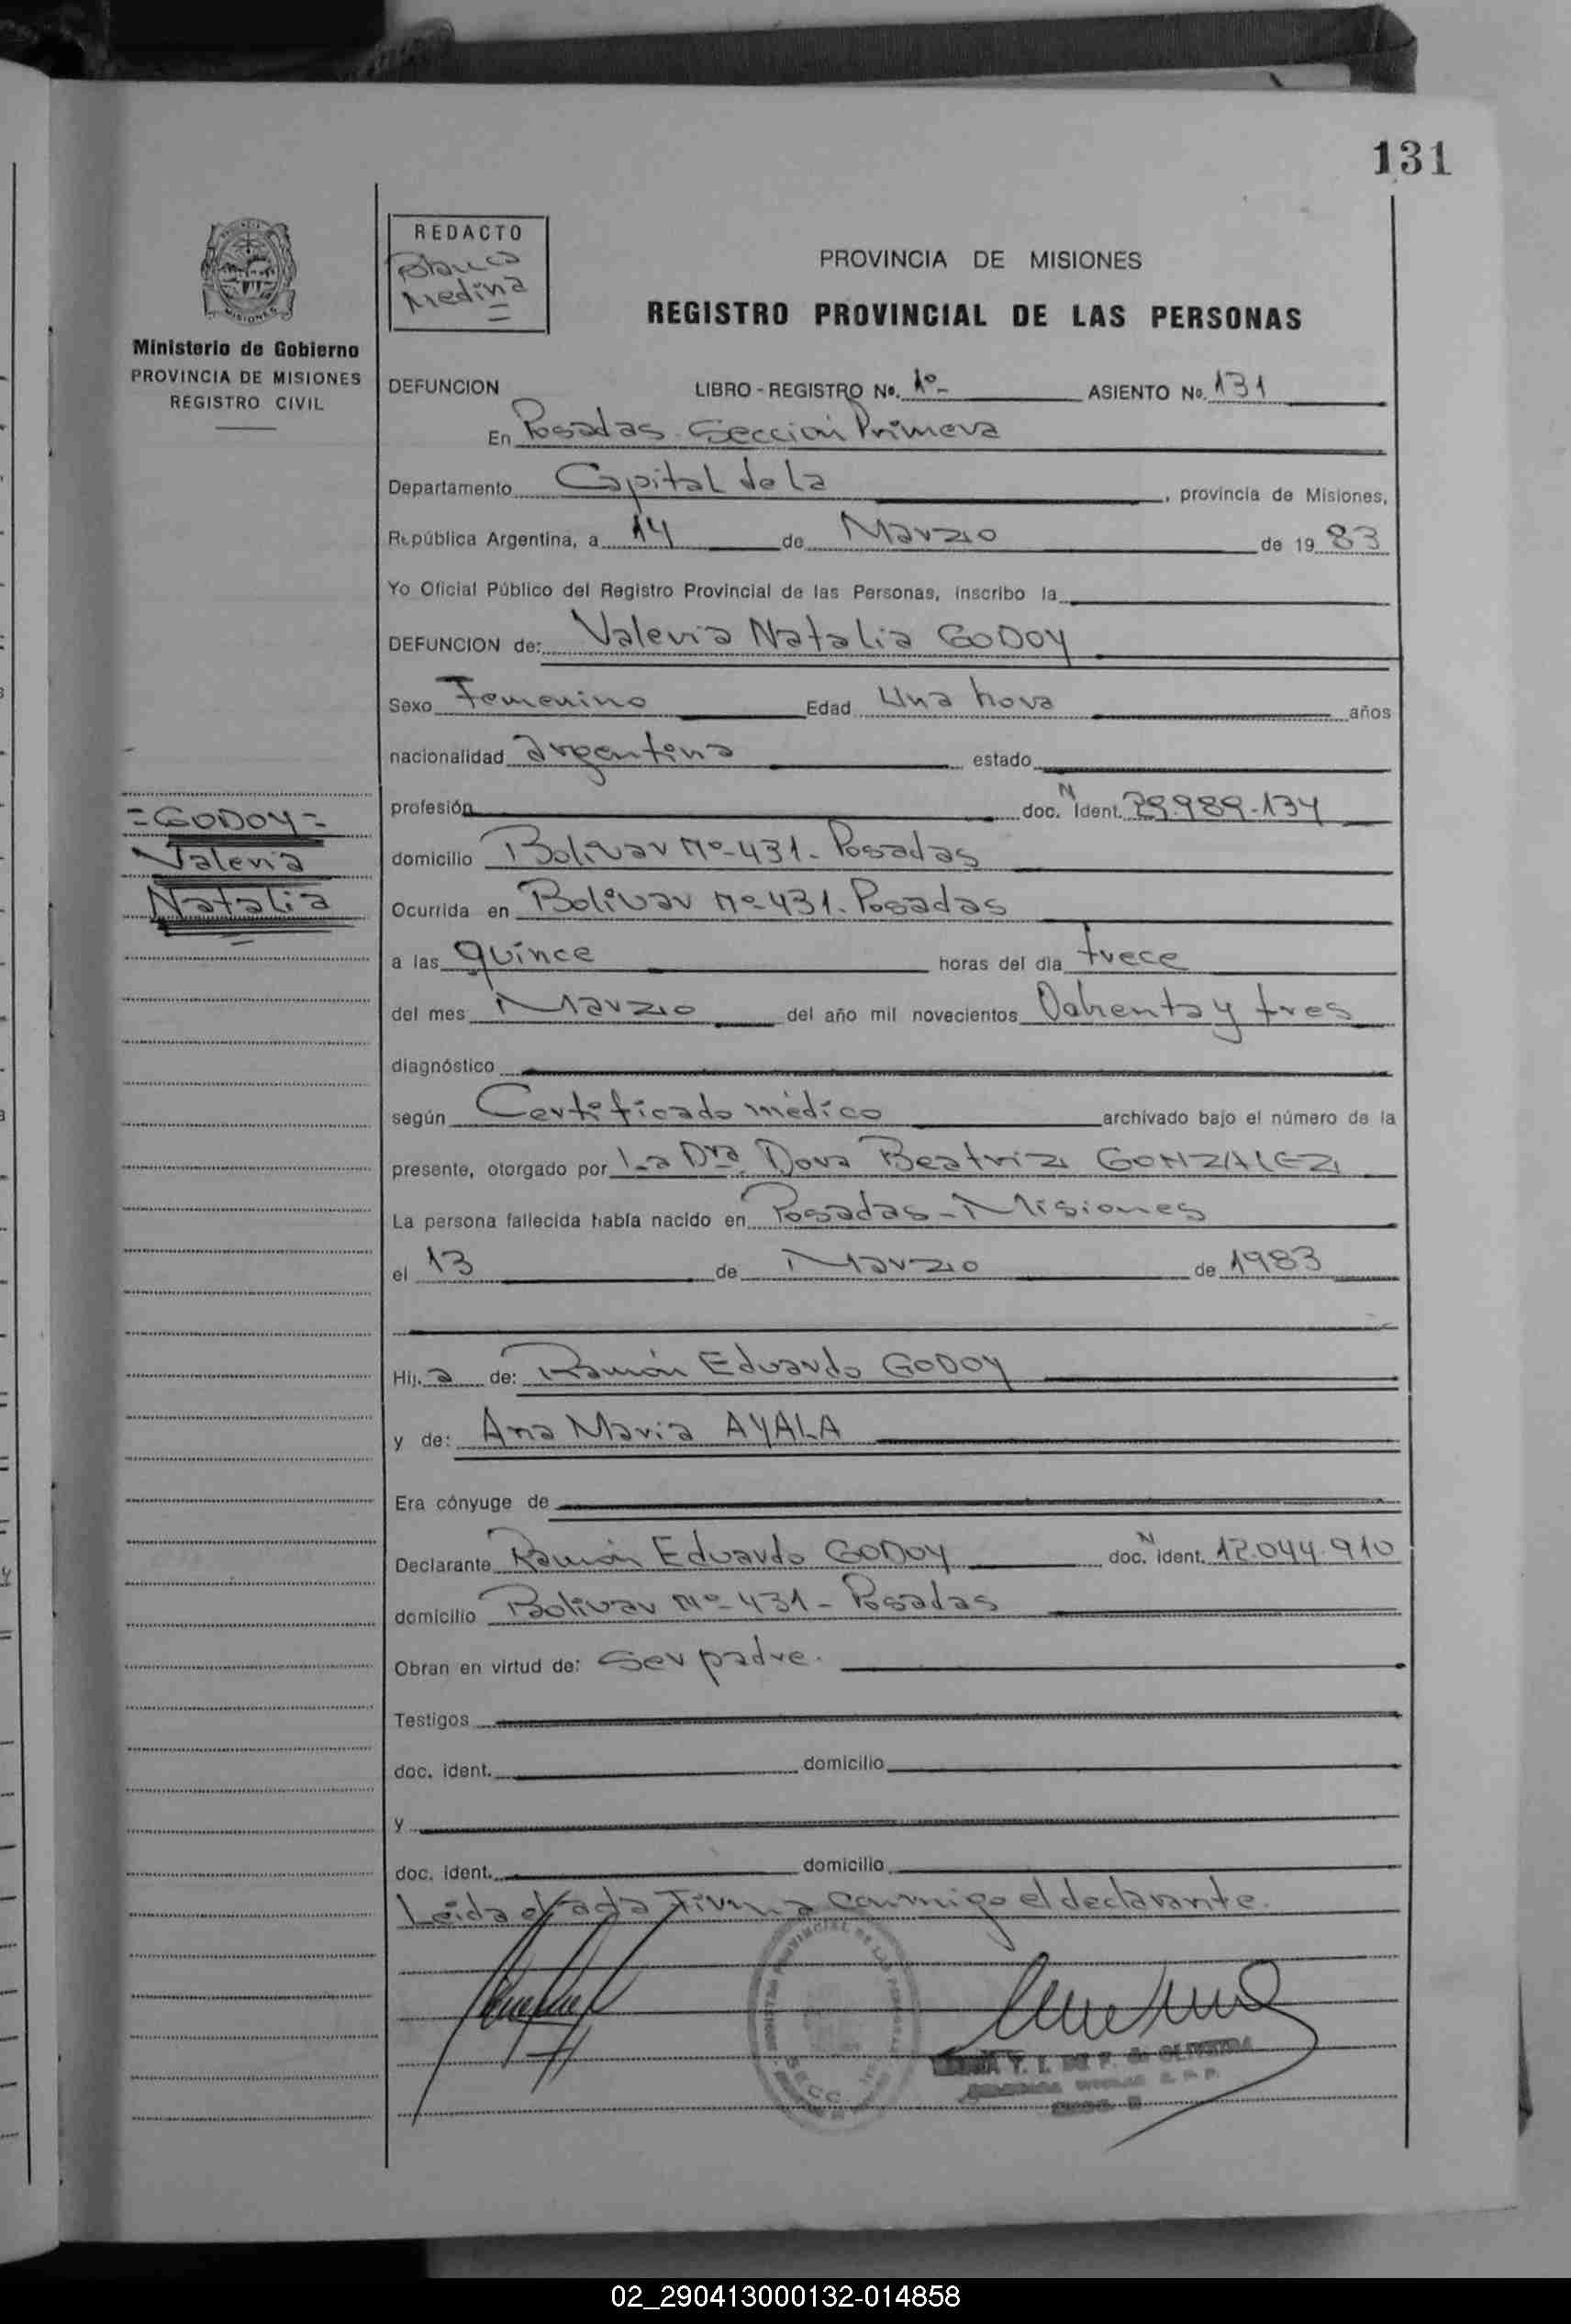 131
REDACTO
Blanca
Medina
PROVINCIA DE MISIONES
REGISTRO PROVINCIAL DE LAS PERSONAS
Ministerio de Gobierno
PROVINCIA DE MISIONES
REGISTRO CIVIL
DEFUNCION LIBRO - REGISTRO No. 1º- ASIENTO No. 131
En Posadas Sección Primera
Departamento Capital de la , provincia de Misiones,
República Argentina, a 14 de Marzo de 19 83
Yo Oficial Público del Registro Provincial de las Personas, inscribo la
DEFUNCION de: Valeria Natalia GODOY
Sexo Femenino Edad Una hora años
nacionalidad argentina estado
profesión doc. N Ident. 29.989.134
=GODOY=
Valeria
Natalia
domicilio Bolivar Nº-431- Posadas
Ocurrida en Bolivar Nº-431- Posadas
a las quince horas del día trece
del mes Marzo del año mil novecientos Ochenta y tres
diagnóstico
según Certificado médico archivado bajo el número de la
presente, otorgado por La Dra. Dora Beatriz GONZALEZ
La persona fallecida había nacido en Posadas - Misiones
el 13 de Marzo de 1983
Hij a de: Ramón Eduardo GODOY
y de: Ana Maria AYALA
Era cónyuge de
Declarante Ramón Eduardo GODOY doc. N ident. 12.044.910
domicilio Bolivar Nº-431- Posadas
Obran en virtud de: Ser padre.
Testigos
doc. ident. domicilio
y
doc. ident. domicilio
Leida el acta Firma conmigo el declarante.
02_290413000132-014858